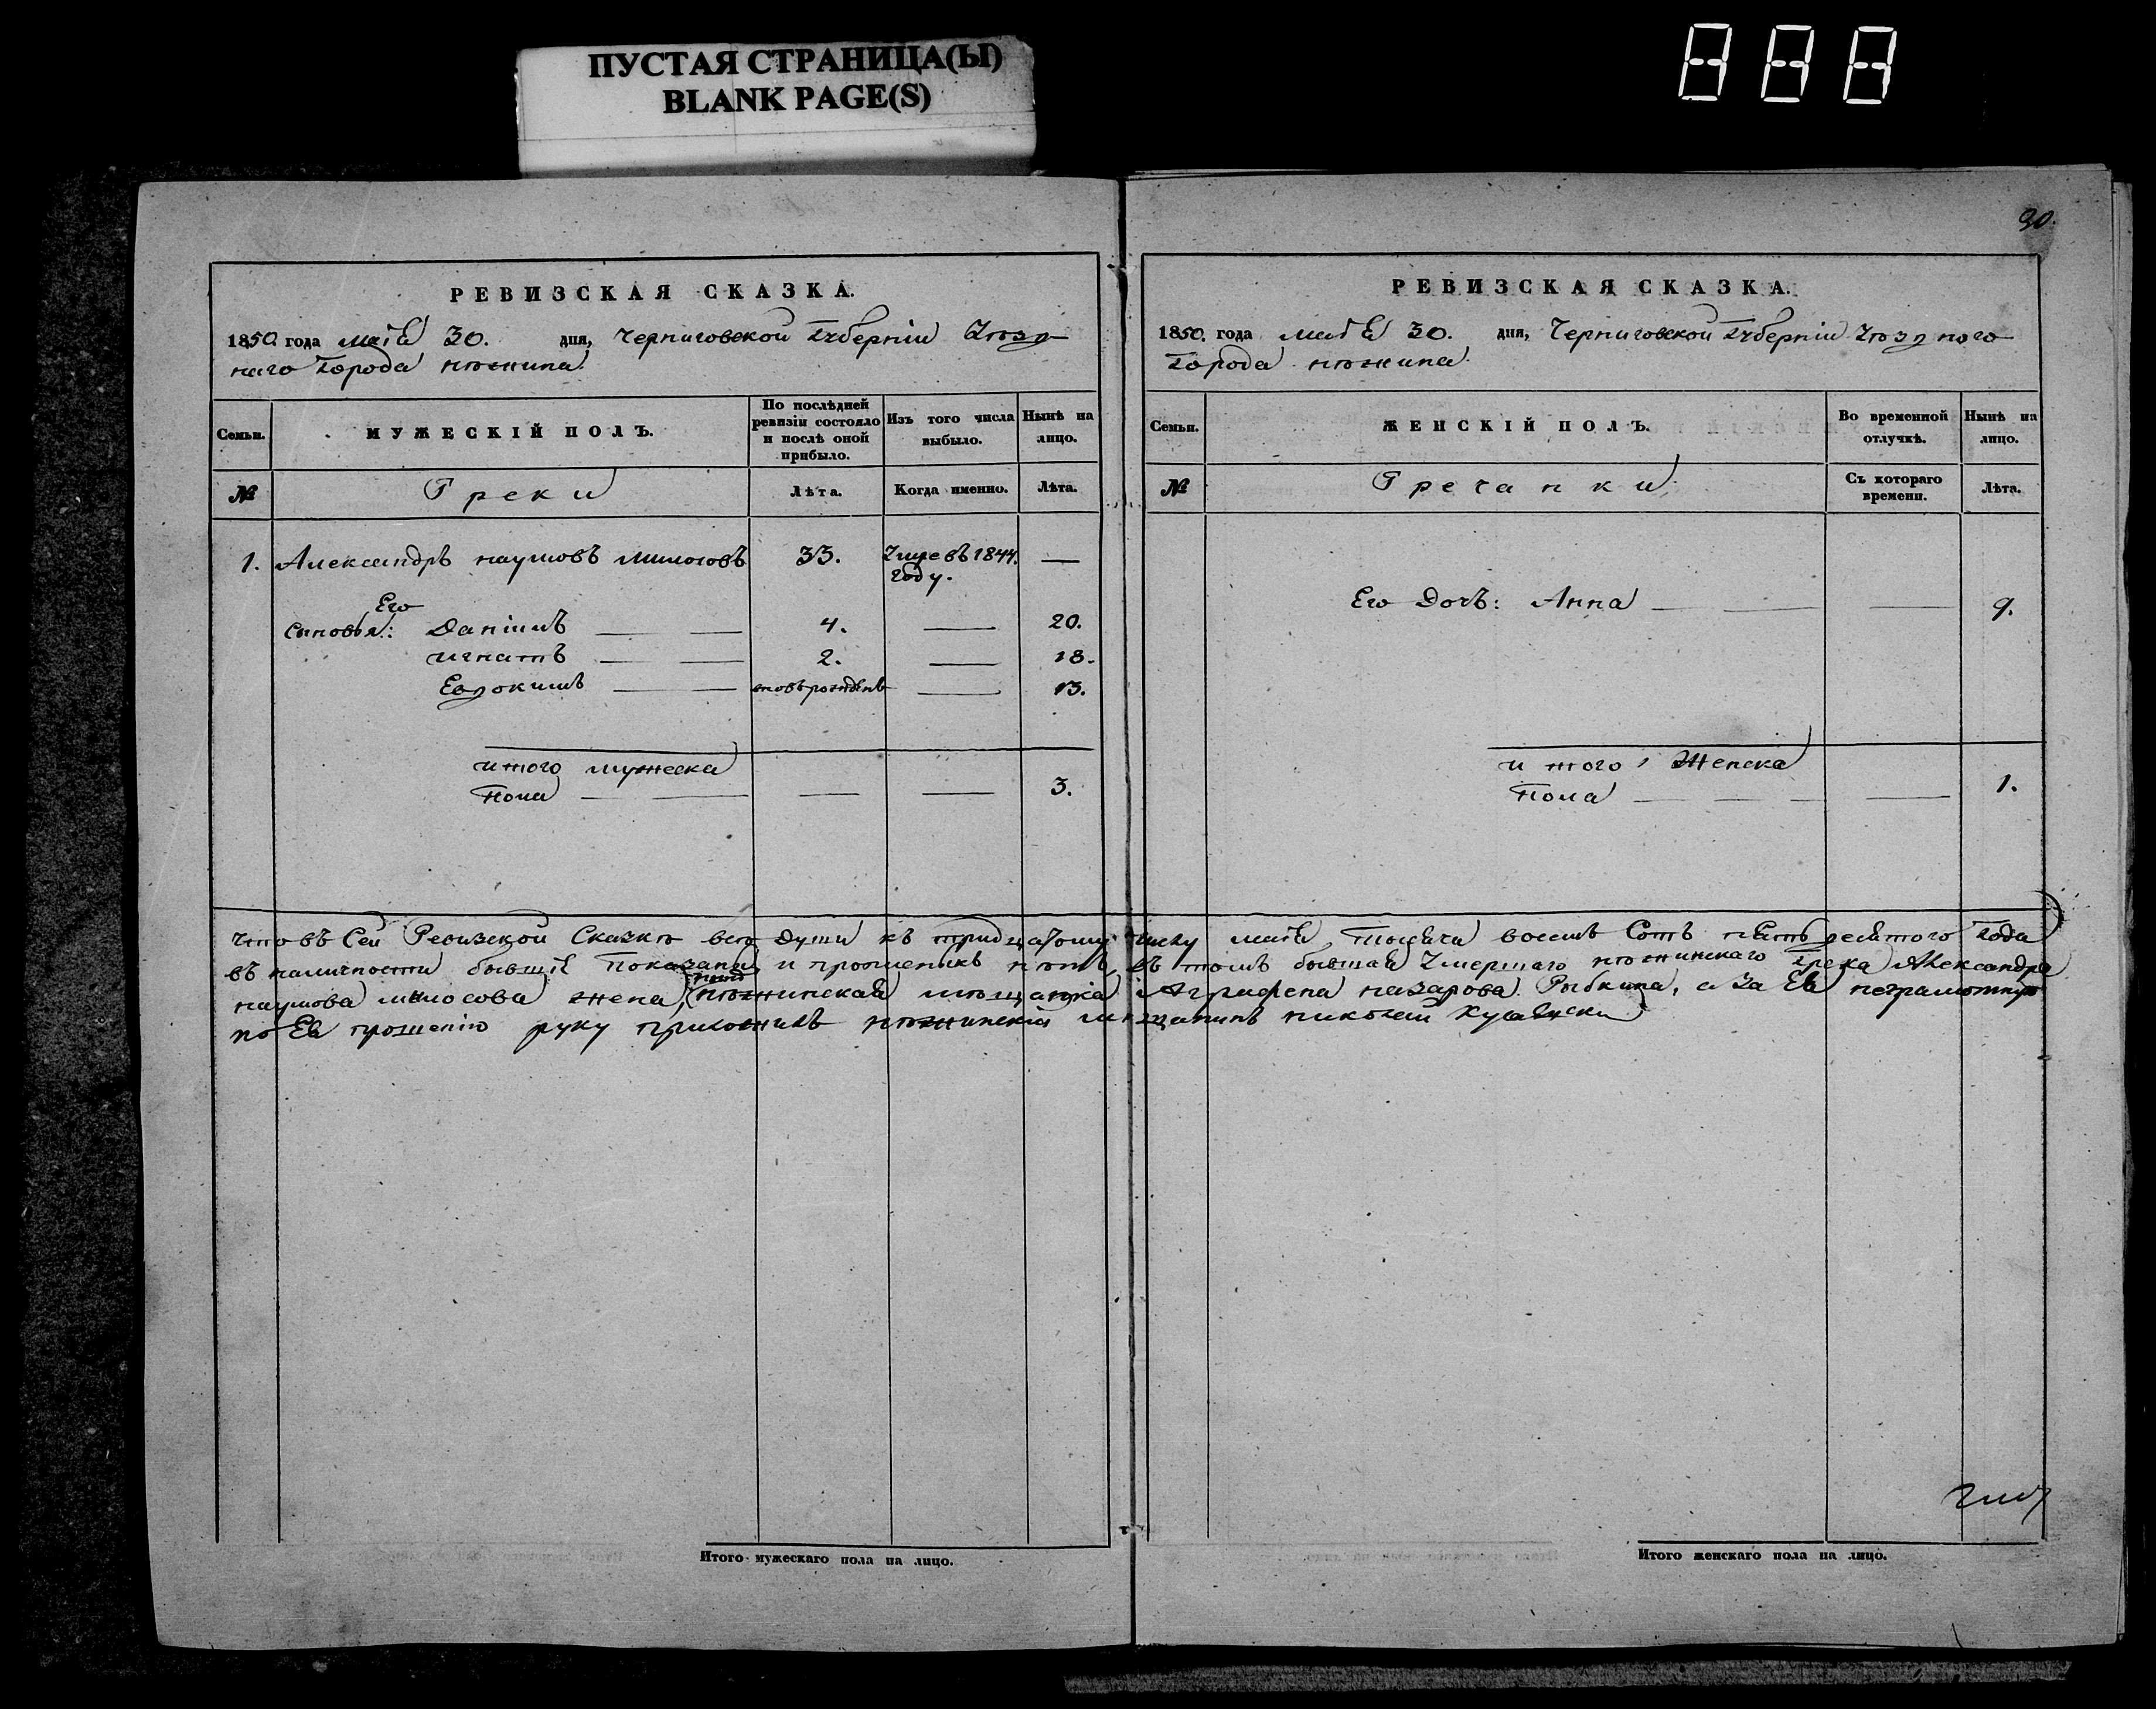 ПУСТАЯ СТРАНИЦА(Ы)
BLANK PAGE(S)
90.
РЕВИЗСКАЯ СКАЗКА.
1850 года маія 30. дня, Черниговской Губерніи Уѣзд
наго города нѣжина.
Семьи.
МУЖЕСКІЙ ПОЛЪ.
По послѣдней ревизіи состояло и послѣ оной прибыло.
Изъ того числа выбыло.
Нынѣ на лицо.
№
Греки
Лѣта.
Когда именно.
Лѣта.
1. Александръ наумовъ милосовъ 33. Умре въ 1844.
году. —
Его
сыновья: Даніилъ — — 4. — 20.
игнатъ — — 2. — 18.
Евдокимъ — — вновь рожденъ — 13.
итого мужеска
пола — — — — 3.
РЕВИЗСКАЯ СКАЗКА.
1850. года маія 30. дня, Черниговской Губерніи Уѣзднаго
города нѣжина.
Семьи.
ЖЕНСКІЙ ПОЛЪ.
Во временной отлучкѣ.
Нынѣ на лицо.
№
Гречанки
Съ котораго времени.
Лѣта.
Его Дочь: Анна — — — 9.
итого Женска
пола — — — — 1.
что въ Сей Ревизской Сказкѣ всѣ Души къ тридцатому числу маія тысяча восемь Сотъ пятьдесятого года
въ наличности бывшіе показаны и нѣтъ въ томъ бывшая Умершаго нѣжинскаго грека Александра
наумова милосова жена, нѣжинская мѣщанка Агрифена назарова Рыбкина, а за Ея неграмотную
по Ея прошенію руку приложилъ нѣжинскій мѣщанинъ николай
Итого мужескаго пола на лицо.
Итого женскаго пола на лицо.